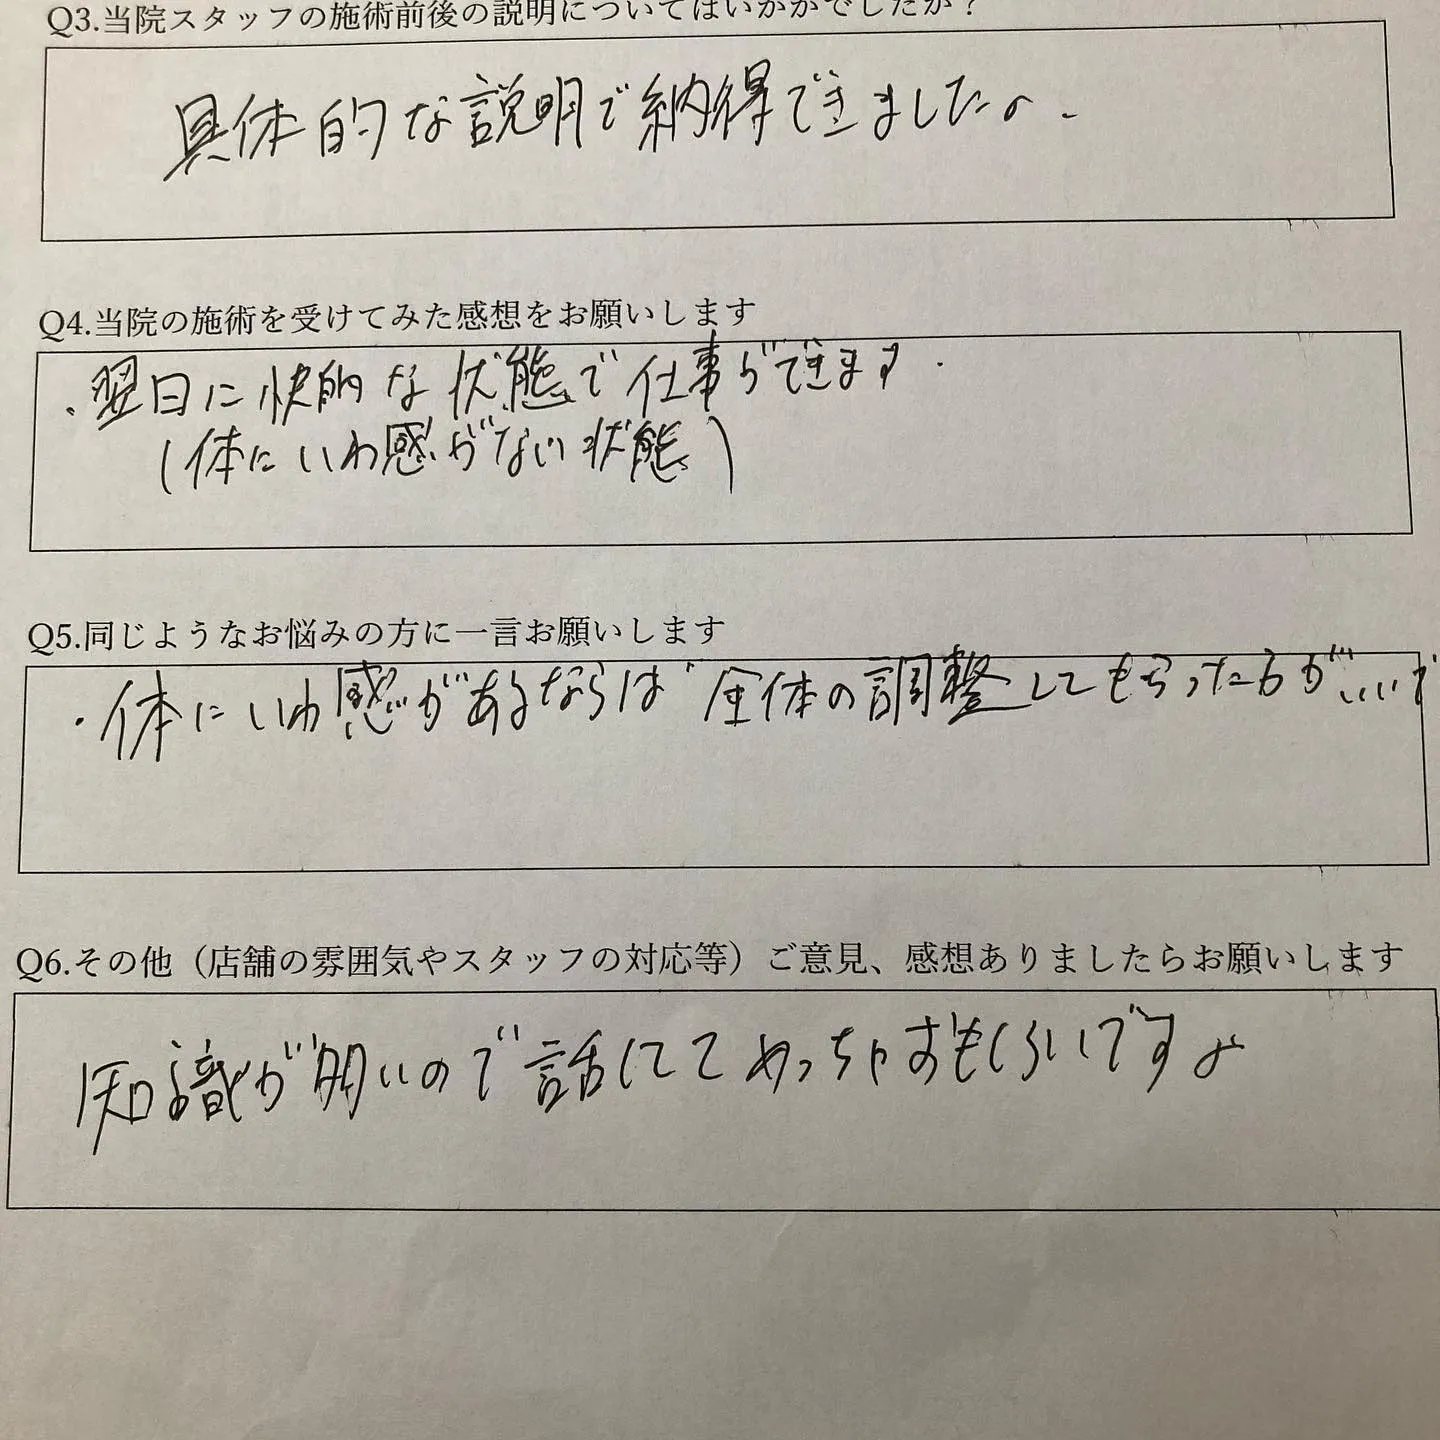 Q3.当院スタッフの施術前後の説明についてはいかがでしたか？
具体的な説明で納得できました。
Q4.当院の施術を受けてみた感想をお願いします
・翌日に快的な状態で仕事ができます.
(体にいわ感がない状態)
Q5.同じようなお悩みの方に一言お願いします
・体にいわ感があるならば全体の調整してもらった方がいいです
Q6.その他（店舗の雰囲気やスタッフの対応等）ご意見、感想ありましたらお願いします
知識が多いので話しててめっちゃおもしろいです